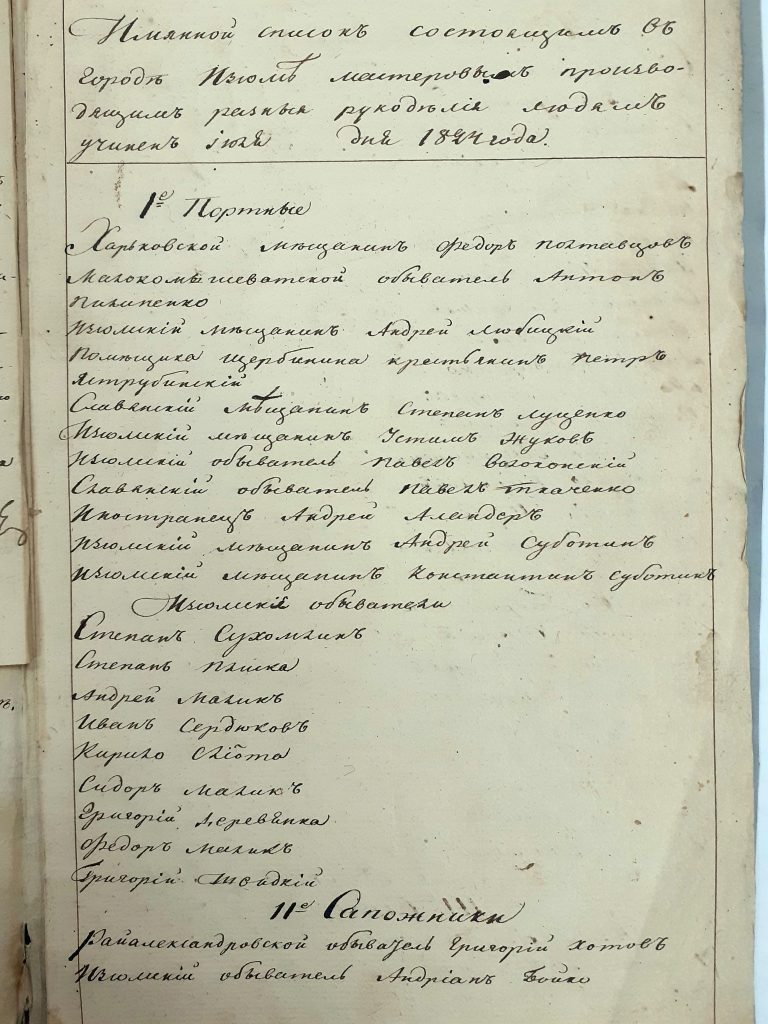 Имянной списокъ состоящимъ въ
городѣ Изюмѣ мастеровымъ произво-
дящимъ разныя рукодѣлія людямъ
учиненъ іюля дня 1824 года.
1е Портные
Харьковской мѣщанинъ Федоръ Полтавцовъ
Малокомышеватской обыватель Антонъ
Пилипенко
Изюмскій мѣщанинъ Андрей Любицкій
Помѣщика Щербинина крестьянинъ Петръ
Яструбинскій
Славянскій мѣщанинъ Степанъ Луценко
Изюмскій мѣщанинъ Устимъ Жуковъ
Изюмскій обыватель Павелъ Волоконскій
Славянскій обыватель Павелъ Ткаченко
Иностранецъ Андрей Аландеръ
Изюмскій мѣщанинъ Андрей Суботинъ
Изюмскій мѣщанинъ Константинъ Суботинъ
Изюмскія обыватели
Степанъ Сухомлинъ
Степанъ Плиска
Андрей Маликъ
Иванъ Сердюковъ
Кирило Сліота
Сидоръ Маликъ
Григорій Деревянка
Федоръ Маликъ
Григорій
11е Сапожники
Райалександровской обыватель Григорій Котовъ
Изюмскій обыватель Андріанъ Бойко